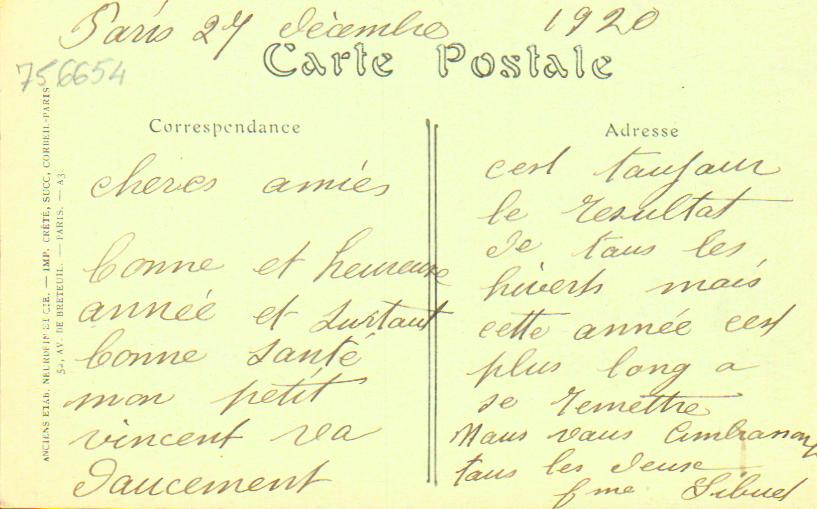 Paris 27 décembre 1920
Carte Postale
756654
ANCIENS ETAB. NEURDEIN ET CIE. — IMP. CRÉTÉ, SUCC, CORBEIL-PARIS
52, AV. DE BRETEUIL. — PARIS. — A3.
Correspondance
cheres amies
bonne et heureuse
année et surtaut
bonne santé
mon petit
vincent va
daucement
Adresse
cest taujaur
le resultat
de taus les
hiverts mais
cette année cest
plus long a
se remettre
Naus vaus embrasson
taus les deuse
fme